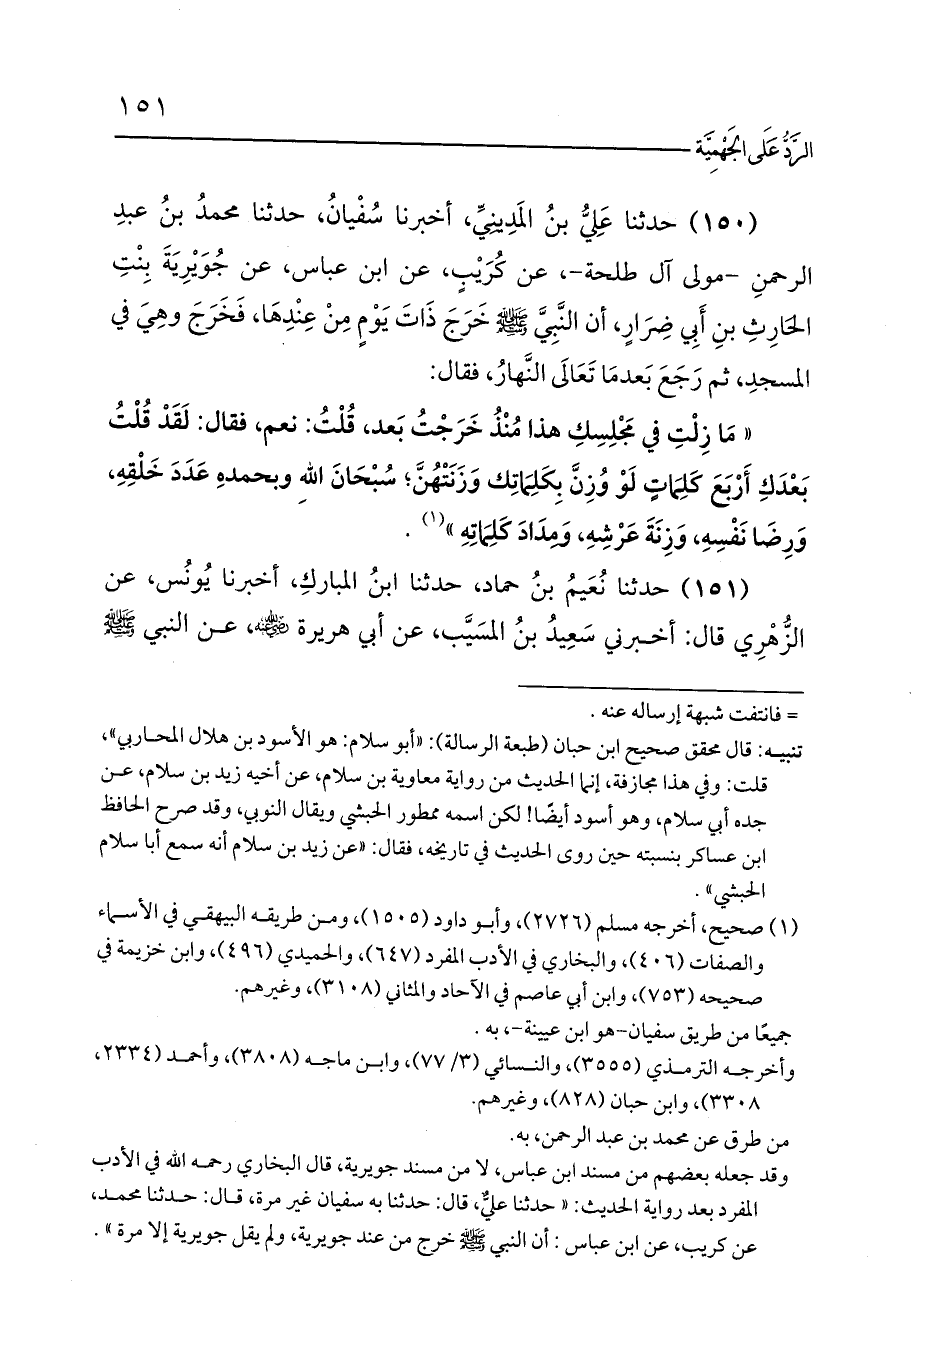 ١٥١
الرَّدُّ عَلَى الجَهْمِيَّة
(١٥٠) حدثنا عَلِيُّ بنُ المَدِينِيِّ، أخبرنا سُفْيانُ، حدثنا محمدُ بنُ عبدِ
الرحمنِ -مولى آل طلحة-، عن كُرَيْبٍ، عن ابن عباس، عن جُوَيْرِيَةَ بِنْتِ
الحَارِثِ بنِ أَبي ضِرَارٍ، أن النَّبِيَّ ﷺ خَرَجَ ذَاتَ يَوْمٍ مِنْ عِنْدِهَا، فَخَرَجَ وهِيَ في
المسجدِ، ثم رَجَعَ بَعدمَا تَعَالَى النَّهارُ، فقال:
« مَا زِلْتِ في مَجْلِسِكِ هذا مُنْذُ خَرَجْتُ بَعد، قُلْتُ: نعم، فقال: لَقَدْ قُلْتُ
بَعْدَكِ أَرْبَعَ كَلِمَاتٍ لَوْ وُزِنَّ بِكَلِمَاتِك وَزَنَتْهُنَّ؛ سُبْحَانَ اللهِ وبحمدهِ عَدَدَ خَلْقِهِ،
وَرِضَا نَفْسِهِ، وَزِنَةَ عَرْشِهِ، وَمِدَادَ كَلِمَاتِهِ »(١) .
(١٥١) حدثنا نُعَيمُ بنُ حماد، حدثنا ابنُ المباركِ، أخبرنا يُونُس، عن
الزُّهْرِي قال: أخبرني سَعِيدُ بنُ المسَيَّب، عن أبي هريرة رضي الله عنه، عن النبي ﷺ
= فانتفت شبهة إرساله عنه .
تنبيه: قال محقق صحيح ابن حبان (طبعة الرسالة): «أبو سلام: هو الأسود بن هلال المحاربي»،
قلت: وفي هذا مجازفة، إنما الحديث من رواية معاوية بن سلام، عن أخيه زيد بن سلام، عن
جده أبي سلام، وهو أسود أيضًا! لكن اسمه ممطور الحبشي ويقال النوبي، وقد صرح الحافظ
ابن عساكر بنسبته حين روى الحديث في تاريخه، فقال: «عن زيد بن سلام أنه سمع أبا سلام
الحبشي» .
(١) صحيح، أخرجه مسلم (٢٧٢٦)، وأبو داود (١٥٠٥)، ومن طريقه البيهقي في الأسماء
والصفات (٤٠٦)، والبخاري في الأدب المفرد (٦٤٧)، والحميدي (٤٩٦)، وابن خزيمة في
صحيحه (٧٥٣)، وابن أبي عاصم في الآحاد والمثاني (٣١٠٨)، وغيرهم.
جميعًا من طريق سفيان-هو ابن عيينة-، به .
وأخرجه الترمذي (٣٥٥٥)، والنسائي (٣/ ٧٧)، وابن ماجه (٣٨٠٨)، وأحمد (٢٣٣٤،
٣٣٠٨)، وابن حبان (٨٢٨)، وغيرهم.
من طرق عن محمد بن عبد الرحمن، به.
وقد جعله بعضهم من مسند ابن عباس، لا من مسند جويرية، قال البخاري رحمه الله في الأدب
المفرد بعد رواية الحديث: « حدثنا عليٌّ، قال: حدثنا به سفيان غير مرة، قال: حدثنا محمد،
عن كريب، عن ابن عباس : أن النبي ﷺ خرج من عند جويرية، ولم يقل جويرية إلا مرة » .